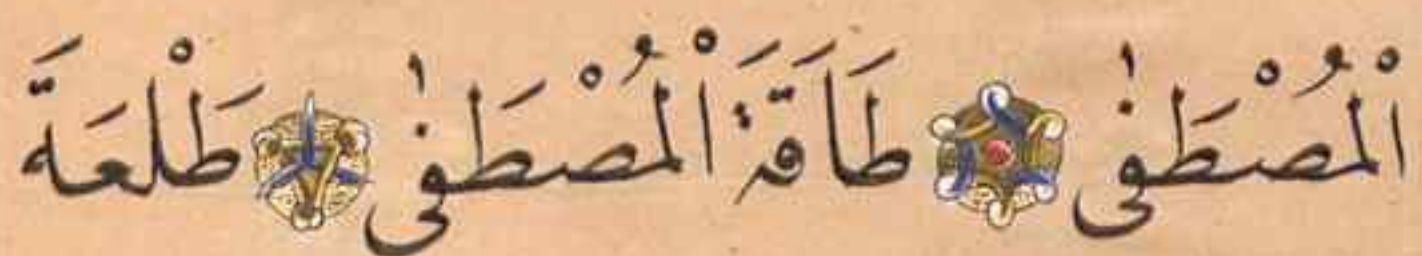 الْمُصْطَفٰى طَاقَةَ الْمُصْطَفٰى طَلْعَةَ